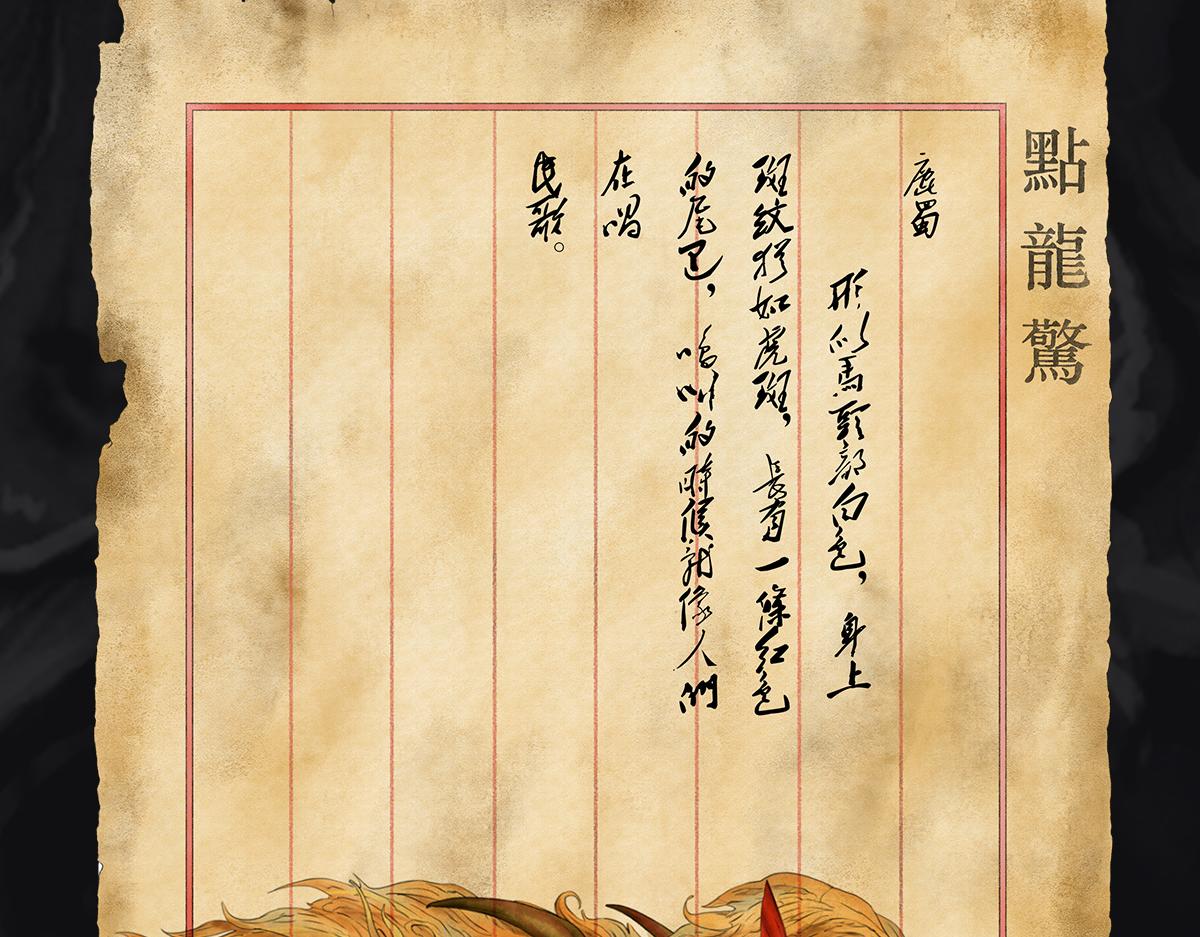 點龍驚
鹿蜀
形似馬頭部白色，身上
斑紋猶如虎斑，長有一條紅色
的尾巴，鳴叫的時候就像人們
在唱
民歌。